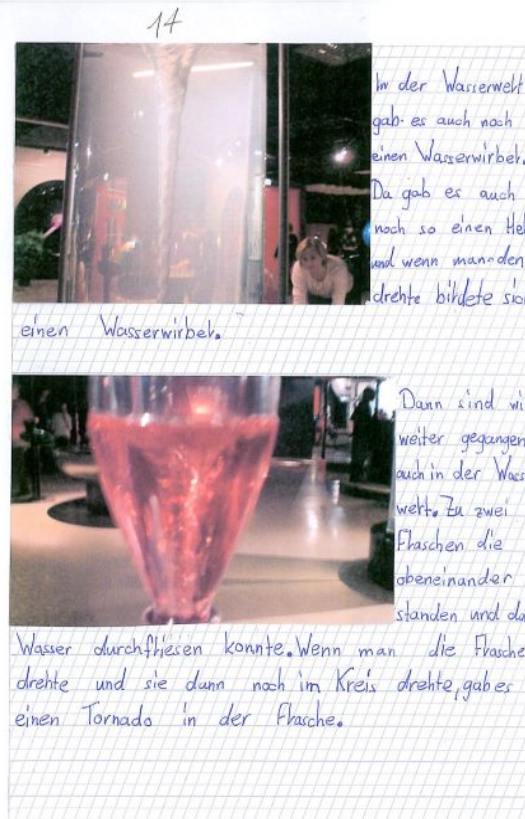 14
In der Wasserwelt
gab es auch noch
einen Wasserwirbel.
Da gab es auch
noch so einen Heb
und wenn man den
drehte bildete sic
einen Wasserwirbel.
Dann sind wi
weiter gegangen
auch in der Wass
welt. Zu zwei
Flaschen die
obeneinander
standen und da
Wasser durchfliesen konnte. Wenn man die Flasche
drehte und sie dann noch im Kreis drehte, gab es
einen Tornado in der Flasche.